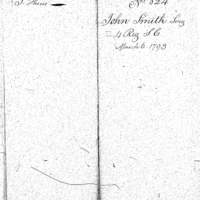 No 324
John Smith Serg
4 Reg S C
March 6. 1793